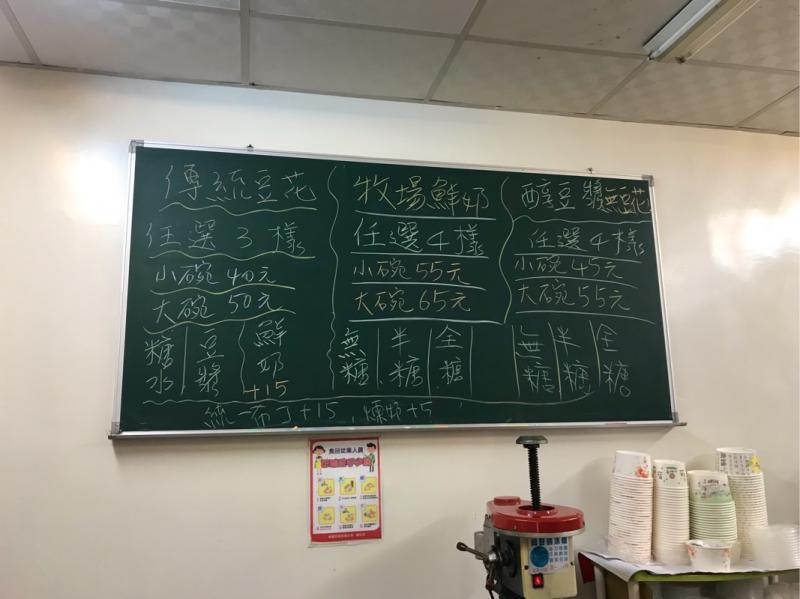 傳統豆花
任選3樣
小碗40元
大碗50元
糖水
豆漿
鮮奶+15
牧場鮮奶
任選4樣
小碗55元
大碗65元
無糖
半糖
全糖
醇豆漿無豆花
任選4樣
小碗45元
大碗55元
無糖
半糖
全糖
統一布丁+15, 煉奶+5